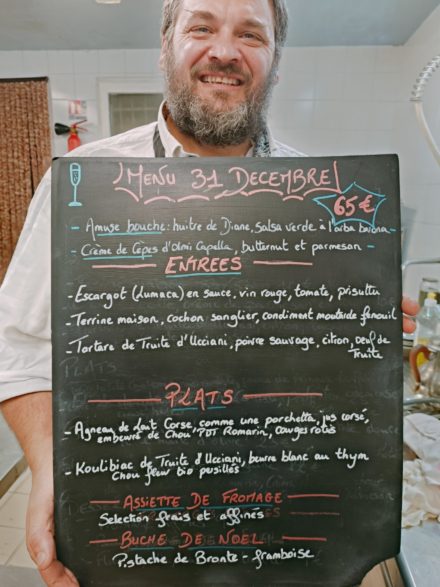 MENU 31 DECEMBRE
65€
- Amuse bouche: huitre de Diane, salsa verde à l'arba barona -
- Crème de Cèpes d'Olmi Capella, butternut et parmesan -
ENTREES
- Escargot (Lumaca) en sauce, vin rouge, tomate, prisuttu
- Terrine maison, cochon sanglier, condiment moutarde fenouil
- Tartare de Truite d'Ucciani, poivre sauvage, citron, oeuf de
Truite
PLATS
- Agneau de Lait Corse, comme une porchetta, jus corsé,
embeurré de Chou PDT Romarin, courges rôties
- Koulibiac de Truite d'Ucciani, beurre blanc au thym
Chou fleur bio persillés
ASSIETTE DE FROMAGE
Selection frais et affinés
BUCHE DE NOEL
Pistache de Bronte - framboise